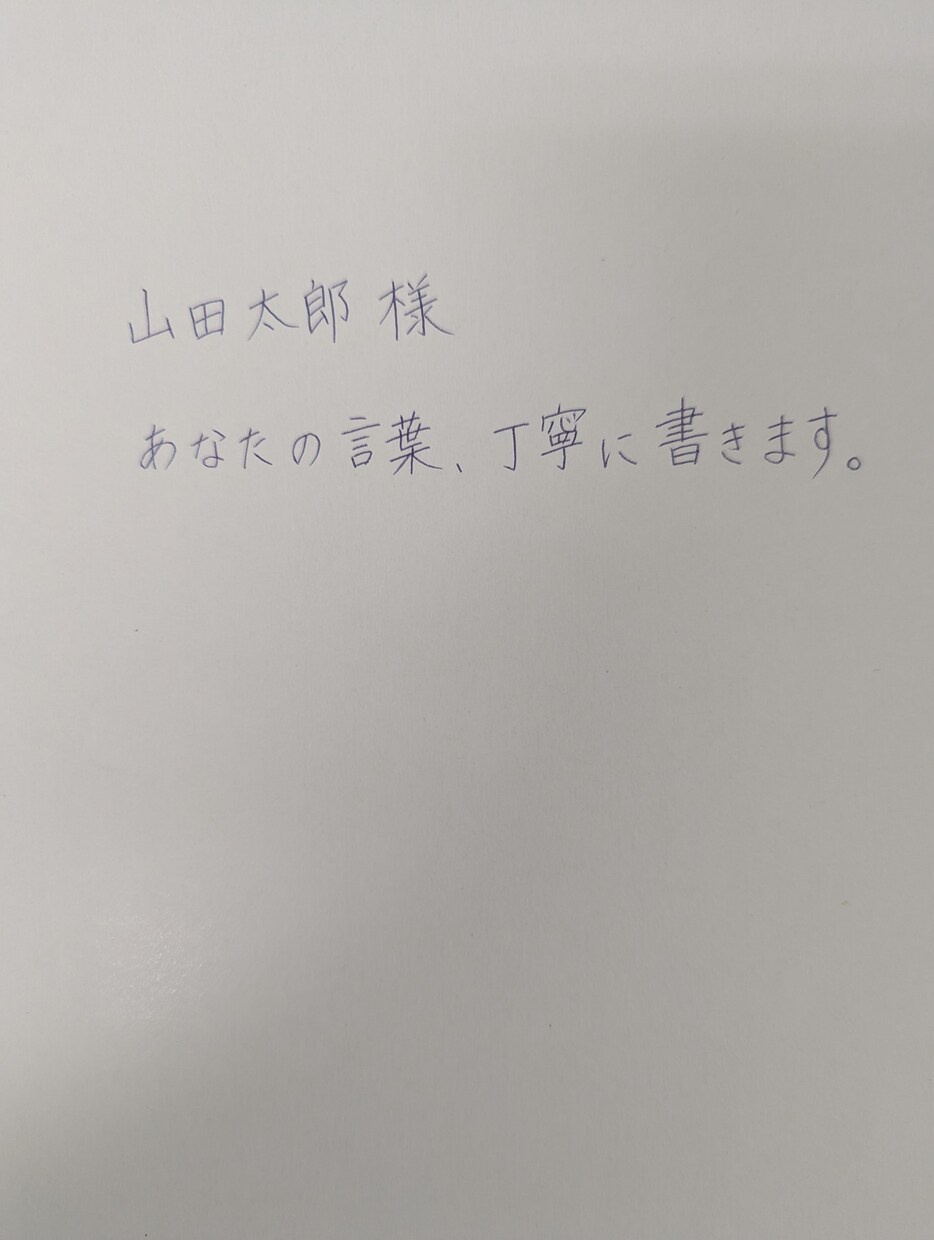 山田太郎 様
あなたの言葉、丁寧に書きます。